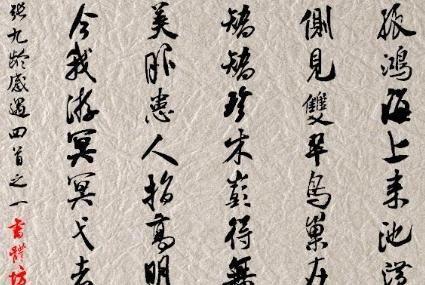 孤鴻海上来池潢
側見雙翠鳥巢在
矯矯珍木巔得無
美服患人指高明
今我游冥冥弋者
張九齡感遇四首之一書體坊